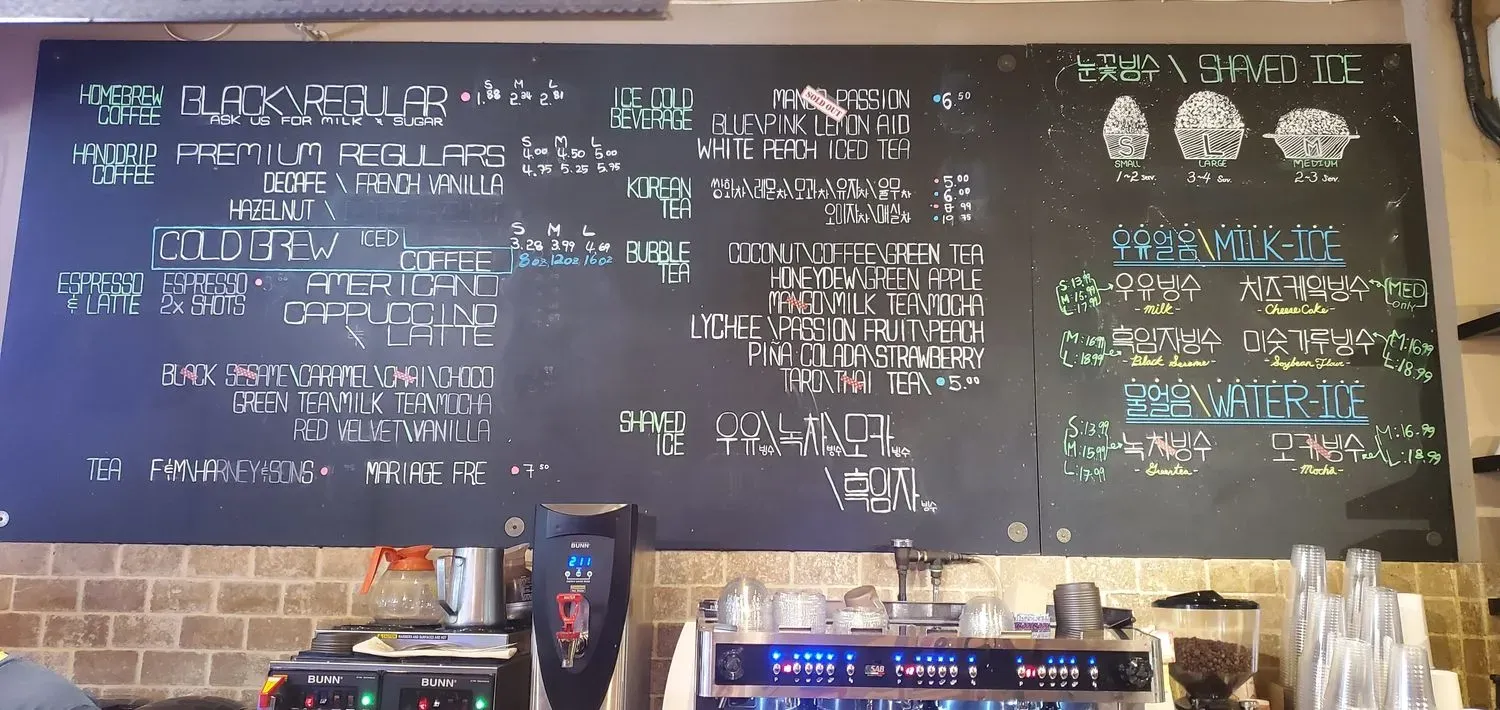 HOMEBREW COFFEE
BLACK\REGULAR
ASK US FOR MILK & SUGAR
S M L
1.88 2.34 2.81
HANDDRIP COFFEE
PREMIUM REGULARS
S M L
4.00 4.50 5.00
DECAFE \ FRENCH VANILLA
4.75 5.25 5.75
HAZELNUT \
COLD BREW ICED COFFEE
S M L
3.28 3.99 4.69
8oz 12oz 16oz
ESPRESSO & LATTE
ESPRESSO
2X SHOTS
AMERICANO
CAPPUCCINO
LATTE
BLACK SESAME\CARAMEL\CHAI\CHOCO
GREEN TEA\MILK TEA\MOCHA
RED VELVET\VANILLA
TEA
F&M\HARNEY&SONS
MARIAGE FRE
7.50
ICE COLD BEVERAGE
MANGO PASSION
SOLD OUT
6.50
BLUE\PINK LEMON AID
WHITE PEACH ICED TEA
KOREAN TEA
쌍화차\레몬차\모과차\유자차\율무차
오미자차\매실차
5.00
6.00
BUBBLE TEA
COCONUT\COFFEE\GREEN TEA
HONEYDEW\GREEN APPLE
MANGO\MILK TEA\MOCHA
LYCHEE\PASSION FRUIT\PEACH
PIÑA COLADA\STRAWBERRY
TARO\THAI TEA\
5.00
SHAVED ICE
우유빙수\녹차빙수\모카빙수
\흑임자빙수
눈꽃빙수 \ SHAVED ICE
S
SMALL
1~2 Serv.
L
LARGE
3-4 Serv.
M
MEDIUM
2-3 Serv.
우유얼음\MILK-ICE
S:13.99
M:15.99
L:17.99
우유빙수
- Milk -
치즈케잌빙수
- Cheese Cake -
MED only
M:16.99
L:18.99
흑임자빙수
- Black Sesame -
미숫가루빙수
- Soybean Flour -
M:16.99
L:18.99
물얼음\WATER-ICE
S:13.99
M:15.99
L:17.99
녹차빙수
- Greentea -
모카빙수
- Mocha -
M:16.99
L:18.99
BUNN
211
BUNN
BUNN
SAB